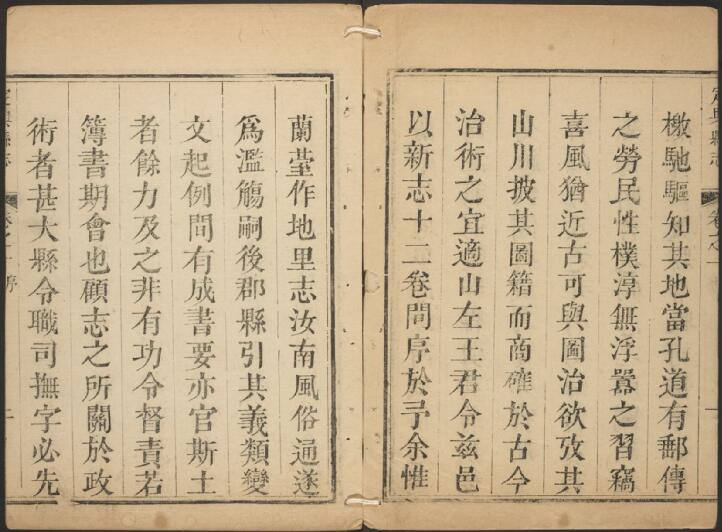 定興縣志
檄馳驅知其地當孔道有郵傳
之勞民性樸淳無浮囂之習竊
喜風猶近古可與圖治欲攷其
山川披其圖籍而商確於古今
治術之宜適山左王君令茲邑
以新志十二卷問序於予余惟
蘭臺作地里志汝南風俗通遂
爲濫觴嗣後郡縣引其義類變
文起例間有成書要亦官斯土
者餘力及之非有功令督責若
簿書期會也顧志之所關於政
術者甚大縣令職司撫字必先
定興縣志
卷之一序